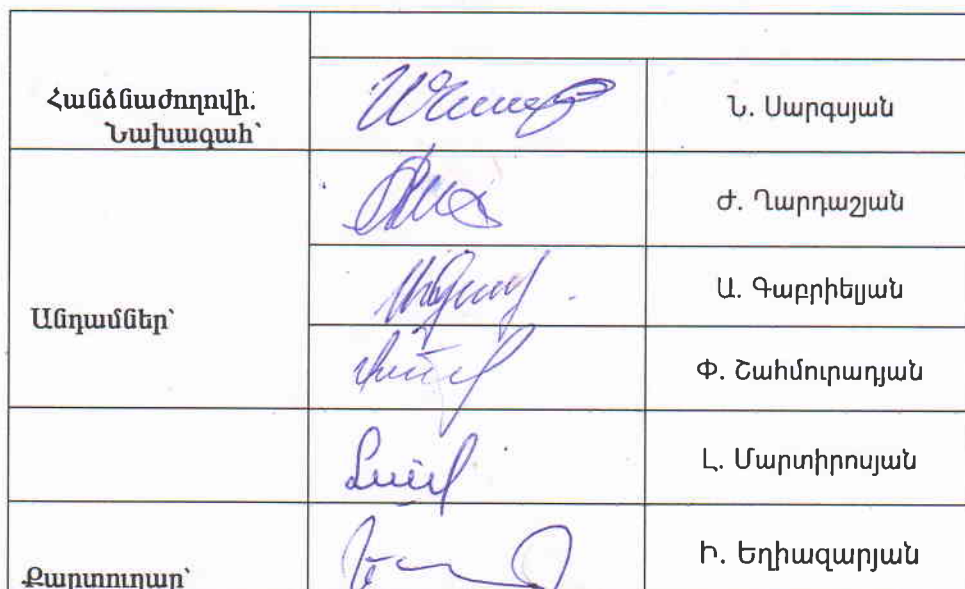 Հանձնաժողովի.
Նախագահ՝
Ն. Սարգսյան
Ժ. Ղարդաշյան
Անդամներ՝
Ա. Գաբրիելյան
Փ. Շահմուրադյան
Լ. Մարտիրոսյան
Քարտուղար՝
Ի. Եղիազարյան